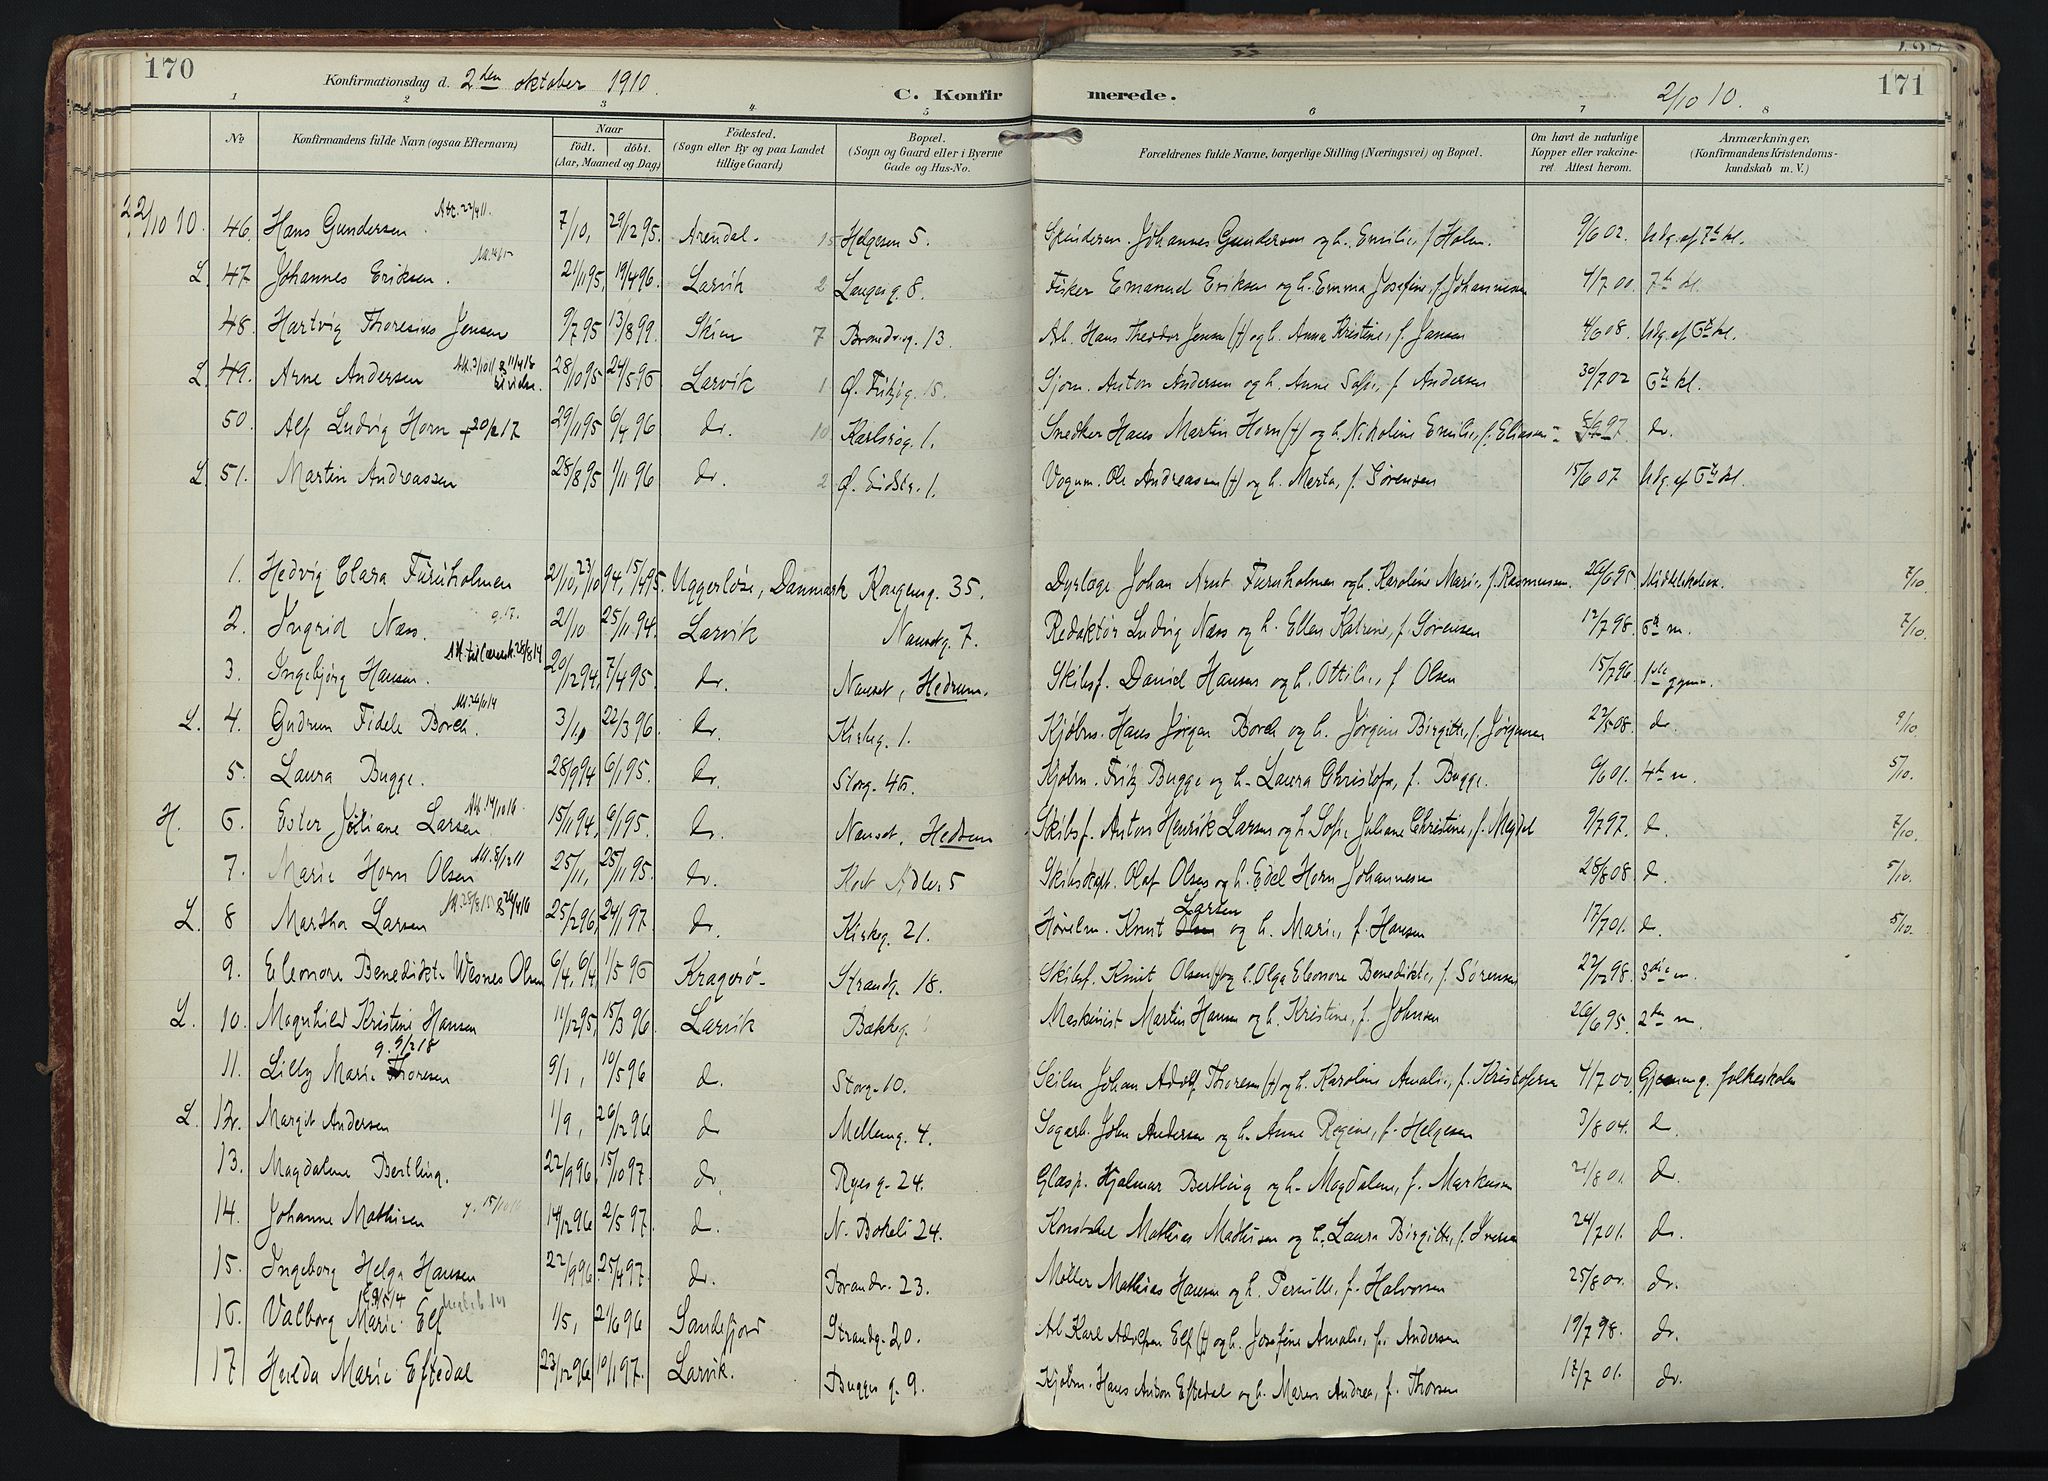 170
Konfirmationsdag d. 2den oktober 1910.
C. Konfirmerede.
2/10 10.
171
1 2 3 4 5 6 7 8
No
Konfirmandens fulde Navn (ogsaa Efternavn)
Naar
födt. döbt.
(Aar, Maaned og Dag)
Födested.
(Sogn eller By og paa Landet
tillige Gaard)
Bopæl.
(Sogn og Gaard eller i Byerne
Gade og Hus-No.
Forældrenes fulde Navne, borgerlige Stilling (Næringsvei) og Bopæl.
Om havt de naturlige
Kopper eller vakcine-
ret. Attest herom.
Anmærkninger,
(Konfirmandens Kristendoms-
kundskab m. V.)
2/10 10. 46. Hans Gundersen. 7/10, 29/12 95. Arendal. 15 Helgesen 5. Johannes Gundersen og h. Emilie, f. Holm. 9/6 02. Udg. af 7de kl.
L. 47 Johannes Eriksen. 21/11 95, 19/4 96. Larvik 2 Langesg. 8. Fisker Emanuel Eriksen og h. Emma Josefine, f. Johannesen 4/7 00. 7de kl.
48. Hartvig Thoresius Jensen 9/7 95 13/8 99. Skien 7 13. Arb. Hans Theodor Jensen (†) og h. Anna Kristine, f. Jansen 4/6 08. Udg. af 6te kl.
L. 49. Arne Andersen 28/10 95 24/5 96 Larvik 1 Ø. Fritzøg. 15. Sjøm. Anton Andersen og h. Anne Sofie, f. Andersen 30/7 02 6te kl.
50. Alf Ludvig Horn † 20/2 17 29/11 95 6/4 96 do. 10 Karlsrog. 1. Snedker Hans Martin Horn (†) og h. Nikoline Emilie, f. Eliasen 97. do.
L. 51. Martin Andreassen 28/8 95 1/11 96 do. 2 Ø. Eidstr. 1. Vognm. Ole Andreassen (†) og h. Marta, f. Sørensen 15/6 07 Udg. af 6te kl.
1. Hedvig Clara Furuholmen 21/10, 23/10 94, 15/4 95. Uggerløse, Danmark Kongensg. 35. Dyrlæge Johan Arnt Furuholmen og h. Karoline Marie, f. Rasmussen. 26/6 95 Middelskolen. 7/10.
2. Ingrid Næss. 21/10 25/11 94. Larvik Nansetg. 7. Redaktør Ludvig Næss og h. Ellen Katrine, f. Sørensen 12/7 98. 6te m. 7/10.
3. Ingebjørg Hansen. 20/12 94, 7/4 95. do. Nanset, Hedrum. Skibsf. Daniel Hansen og h. Ottilie, f. Olsen 15/7 96 1ste gymn.
L. 4. Gudrun Fidele Borch. 3/1, 22/3 96. do. Kirkeg. 1. Kjøbm. Hans Jørgen Borch og h. Jørgine Birgitte, f. Jørgensen 22/5 08. do. 9/10.
5. Laura Bugge. 28/9 94 6/1 95. do. Storg. 46. Kjøbm. Fritz Bugge og h. Laura Christofa, f. Bugge. 9/6 01. 4de m. 5/10.
H. 6. Ester Juliane Larsen. 15/11 94, 6/1 95. do. Nanset, Hedrum Skibsf. Anton Henrik Larsen og h. Sofie Juliane Christine, f. Meydel 9/7 97. do. 7/10.
7. Marie Horn Olsen Att. 8/12 11 25/11, 25/11 95. do. Kort Adler 5 Skibskapt. Olaf Olsen og h. Edel Horn Johannesen 28/8 08. d. 5/10.
L. 8 Martha Larsen 25/12 96, 24/1 97 do. Kirkeg. 21. Knut Larsen og h. Marie, f. Hansen 17/7 01. d. 5/10.
9. Eleonore Benedikte Wesnes Olsen 6/4, 6/4 1/5 96 Kragerø Strandg. 18. Skibsf. Knut Olsen (†) og h. Olga Eleonore Benedikte, f. Sørensen 22/12 98. 3die m.
L. 10. Magnhild Kristine Hansen 11/12 95, 15/3 96. Larvik Bækkeg. Maskinist Martin Hansen og h. Kristine, f. Johnsen 26/6 95. 2den m.
g. 9/2 18
11. Lilly Marie Thoresen 9/1, 10/5 96 d. Storg. 10. Johan Adolf Thoresen (†) og h. Karoline Amalie, f. Kristofersen 4/7 00. folkeskolen
L. 12. Margit Andersen 1/9, 26/12 96 d Mellemg. 4. Sagarb. John Andersen og h. Anne Regine, f. Helgesen 3/8 04. d.
13. Magdalene Bertling. 22/9 96, 15/10 97. do. Ryesg. 24. Glasp. Hjalmar Bertling og h. Magdalene, f. Markusen 21/8 01. do.
14. Johanne Mathisen 14/12 96 2/5 97. d. N. Bøkeli 24. Konstabel Mathias Mathisen og h. Laura Birgitte, f. Iversen 24/7 01. do.
15. Ingeborg Helga Hansen 22/9 96. 25/4 97. do. 23. Møller Mathias Hansen og h. Pernille, f. Halvorsen do.
16. Valborg Marie Elf 1/5, 21/6 96 Sandefjord Strandg. 20. Arb. Karl Adolf Elf (†) og h. Josefine Amalie, f. Andersen 19/7 98. do.
17 Hulda Marie Eftedal 23/12 96 10/1 97. Larvik. Bugges g. 9. Kjøbm. Hans Anton Eftedal og h. Maren Andrea, f. Thorsen 17/7 01. do.